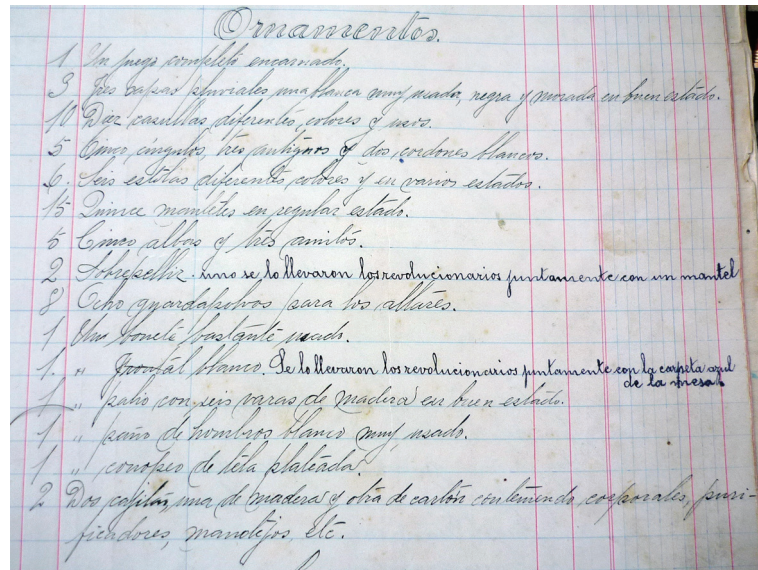 Ornamentos.
1 Un juego completo encarnado.
3 Tres capas pluviales una blanca muy usada, negra y morada en buen estado.
10 Diez casullas diferentes, colores y usos.
5 Cinco, cíngulos, tres antiguos y dos, cordones blancos.
6. Seis estolas diferentes, colores y en varios estados.
15 Quince manteles en regular estado.
5 Cinco albas y tres amitos.
2 Sobrepelliz. uno se lo llevaron los revolucionarios juntamente con un mantel
8 Ocho guardapolvos para los altares.
1 Un bonete bastante usado.
1. „ frontal blanco. Se lo llevaron los revolucionarios juntamente con la carpeta azul
de la mesa.
1 „ palio con seis varas de madera en buen estado.
1 „ paño de hombros blanco muy usado.
1 „ conopeo de tela plateada.
2 Dos cajitas, una de madera y otra de cartón conteniendo corporales, puri-
ficadores, manotejos, etc.